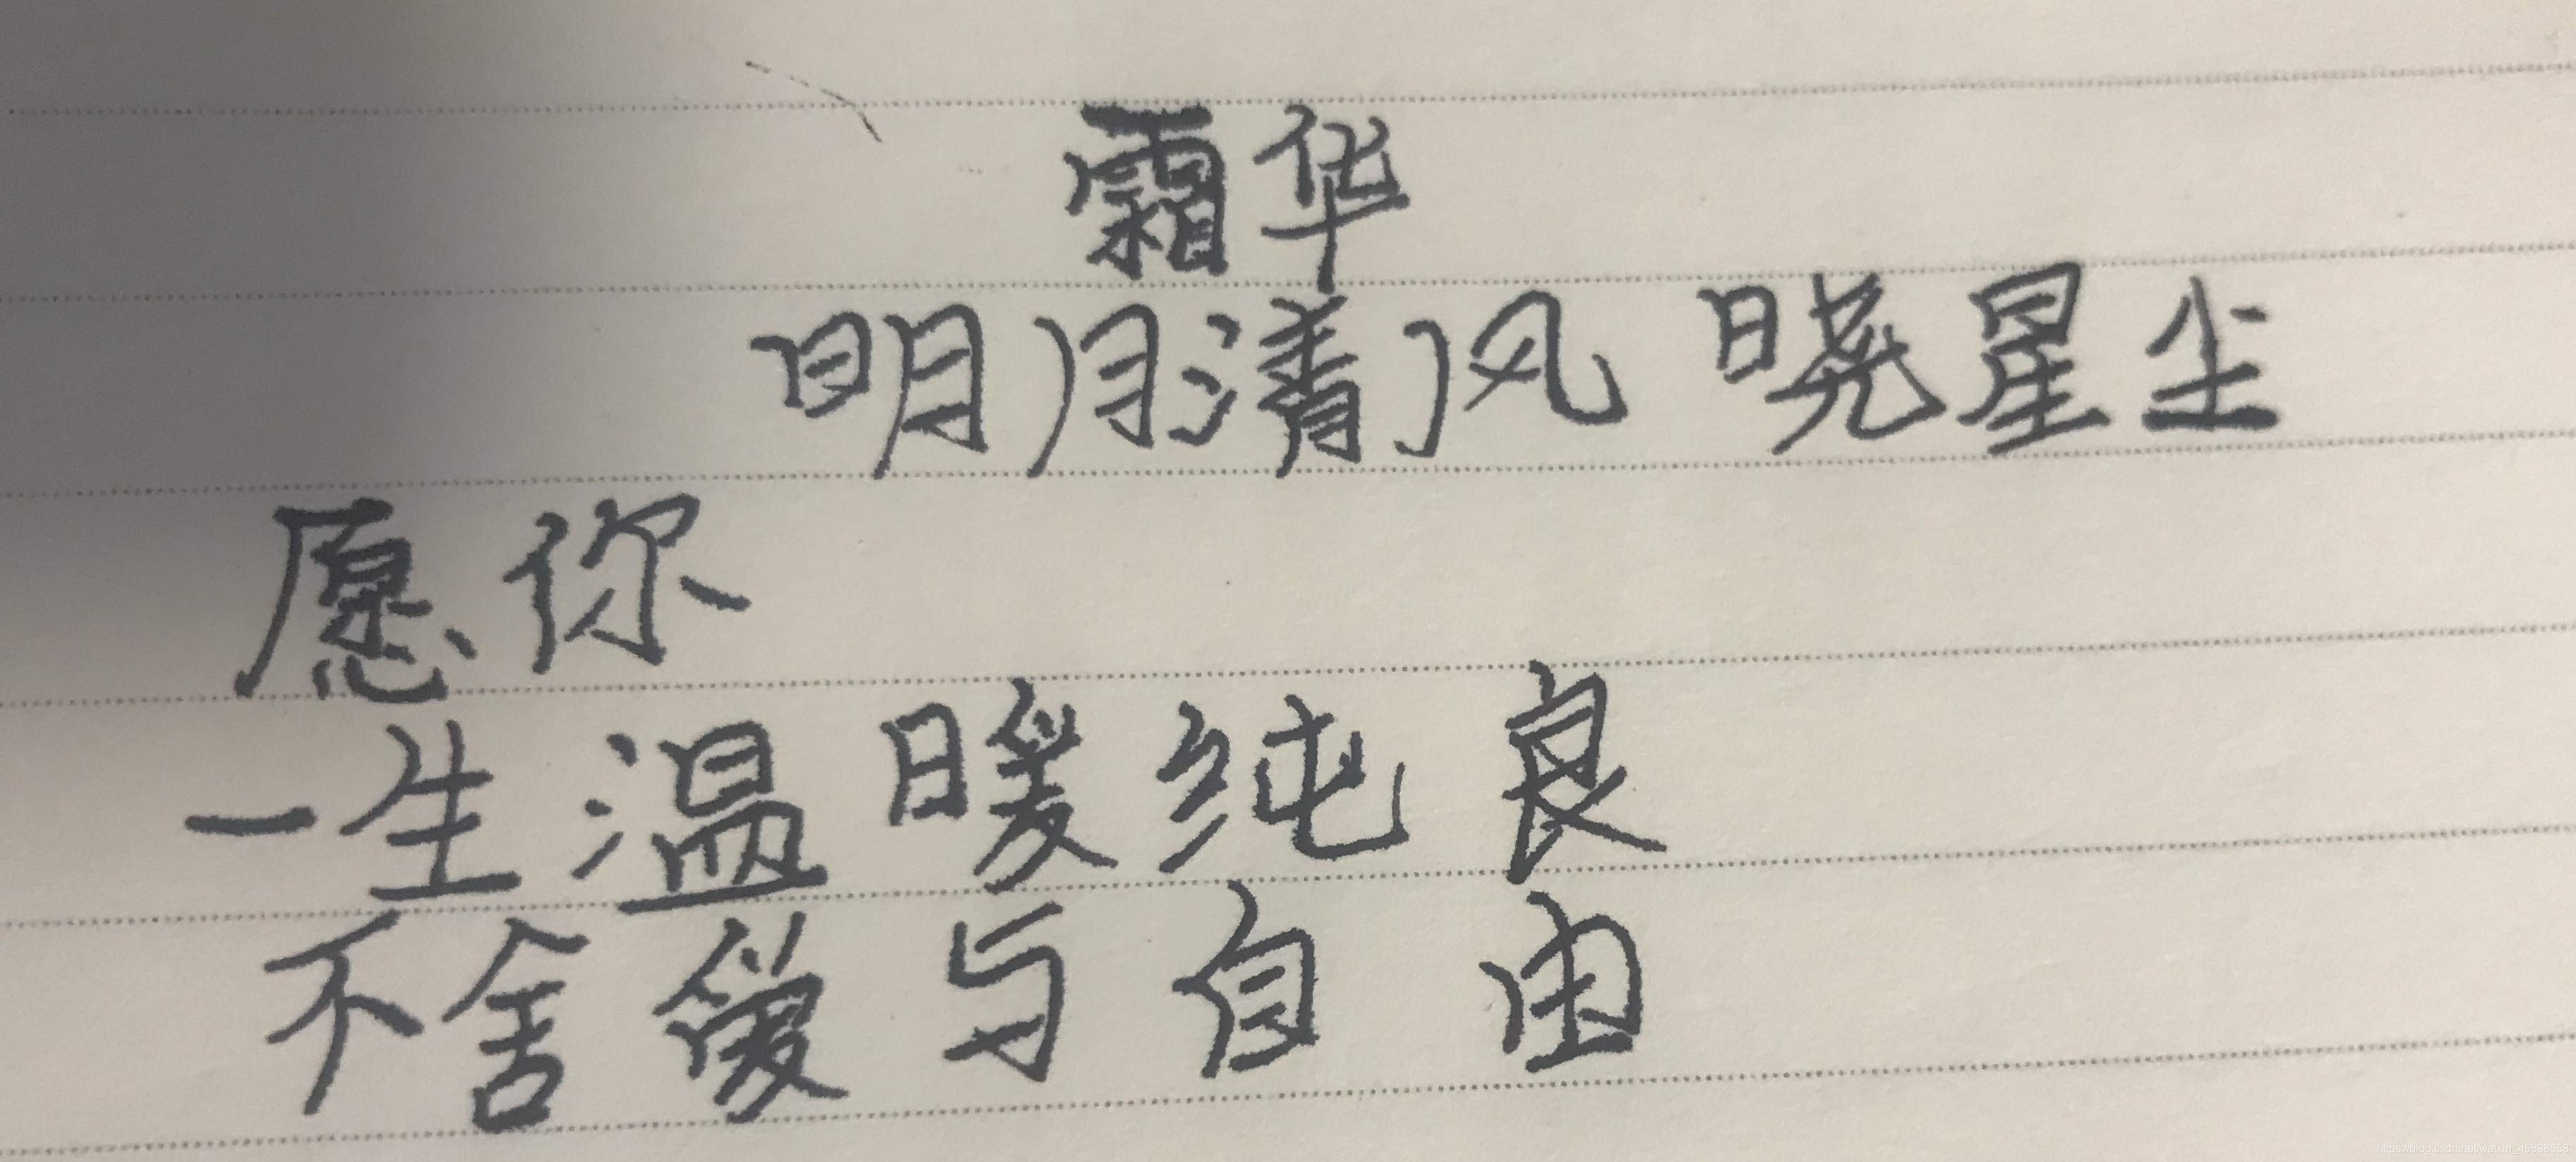 霜华
明月清风 晓星尘
愿你
一生温暖纯良
不舍爱与自由